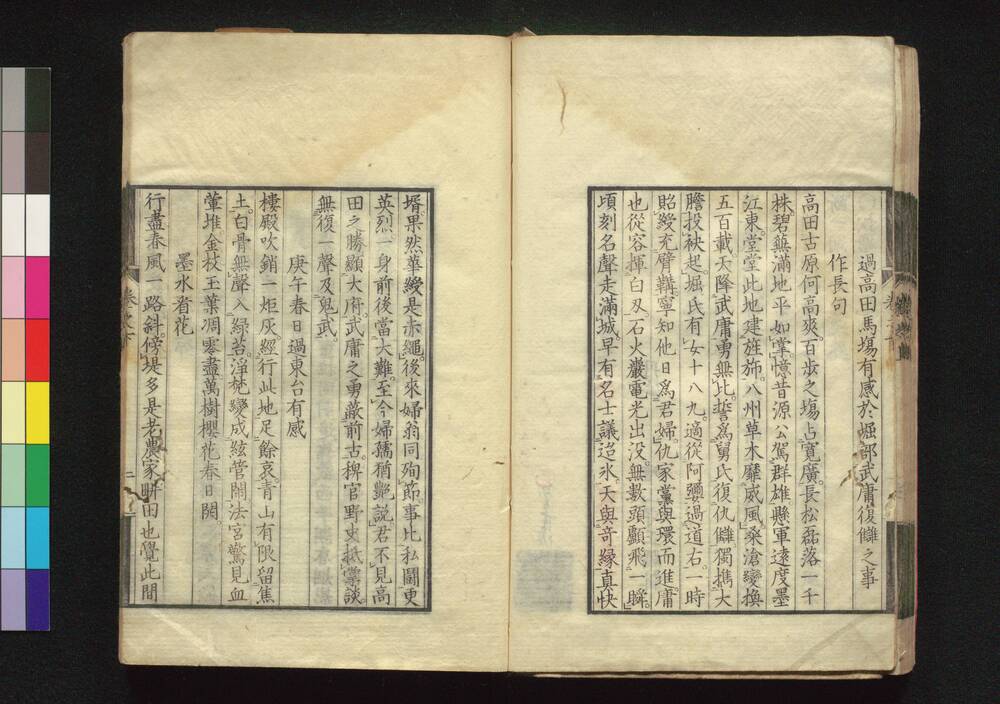 過高田馬塲有感於堀部武庸復讎之事
作長句
高田古原何高爽百步之塲占寬廣長松磊落一千
株碧無滿地平如掌憶昔源公駕群雄懸軍遠度墨
江東堂堂此地建旌斾八州草木靡威風桑滄變換
五百載天降武庸勇無比誓爲舅氏復仇讎獨擕大
膽投袂起堀氏有女十八九適從阿彌過道右一時
貽綬充臂韝寧知他日爲君婦仇家黨與環而進庸
也從容揮白刄石火巖電光出没無數頭顱飛一瞬
頃刻名聲走滿城早有名士議迨氷天與竒縁真快
壻果然華綬是赤繩後來婦翁同殉節事比私鬪更
英烈一身前後當大難至今婦孺猶艷說君不見高
田之勝顯大府武庸之勇蔽前古稗官野史抵掌談
無復一聲及鬼武
庚午春日過東台有感
樓殿吹銷一炬灰經行此地足餘哀青山有限留焦
土白骨無聲入緑苔淨梵變成絃管鬧法宮驚見血
葷堆金枝玉葉凋零盡萬樹櫻花春日開
墨水省花
行盡春風一路斜傍堤多是老農家畊田也覺此間
卷之下
二